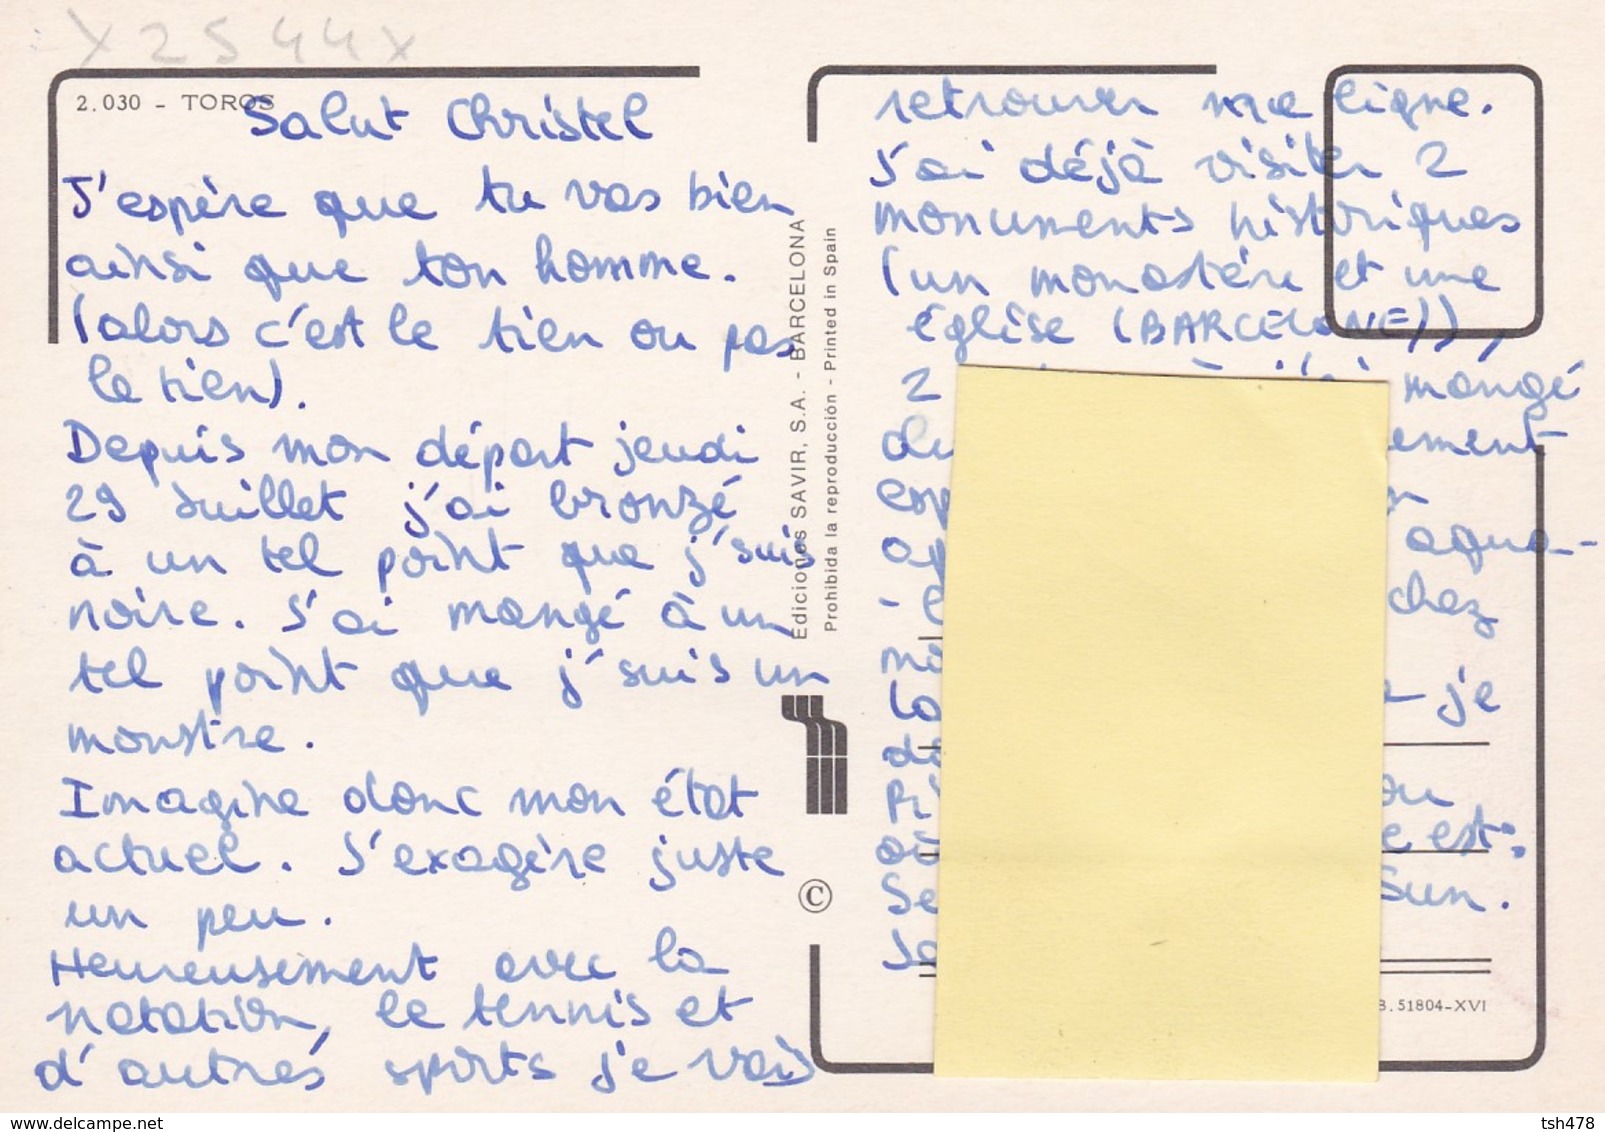 X2544x
2.030 - TOROS
Salut Christel
J'espère que tu vas bien
ainsi que ton homme.
(alors c'est le tien ou pas
le tien).
Depuis mon départ jeudi
29 Juillet j'ai bronzé
à un tel point que j'suis
noire. J'ai mangé à un
tel point que j'suis un
monstre.
Imagine donc mon état
actuel. J'exagère juste
un peu.
Heureusement avec la
natation, le tennis et
d'autres sports je vais
Ediciones SAVIR, S.A. - BARCELONA
Prohibida la reproducción - Printed in Spain
©
retrouver ma ligne.
J'ai déjà visiter 2
monuments historiques
(un monastère et une
église (BARCELONE)),
2 mangé
du ement
esp
ap aqua-
- chez
ma
la je
da
Pi ou
où e est:
Se Sun.
B. 51804-XVI
delcampe.net
tsh478